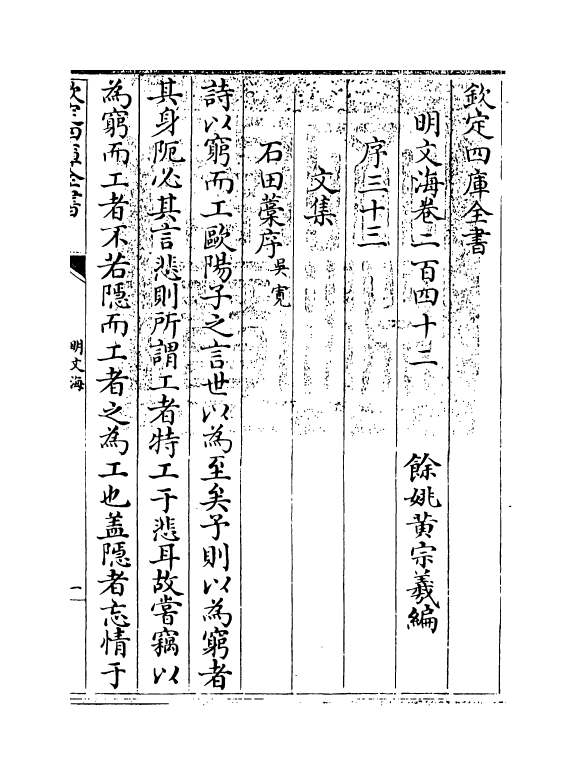 欽定四庫全書
明文海卷二百四十二
餘姚黃宗羲編
序三十三
文集
石田藁序吳寬
詩以窮而工歐陽子之言世以為至矣予則以為窮者
其身阨必其言悲則所謂工者特工于悲耳故嘗竊以
為窮而工者不若隱而工者之為工也盖隱者忘情于
欽定四庫全書
明文海
一